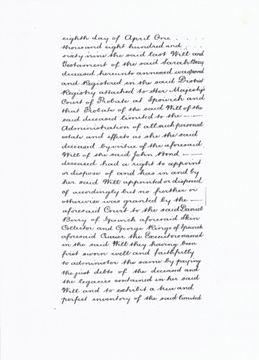 eighth day of April One
thousand eight hundred and
sixty nine the said last Will and
Testament of the said Sarah
deceased hereunto annexed was proved
and Registered in the said District
Registry attached to Her Majesty's
Court of Probate at Ipswich and
that Probate of the said Will of the
said deceased limited to the
Administration of all such personal
estate and effects as she the said
deceased by virtue of the aforesaid
Will of the said John Bond
deceased had a right to appoint
or dispose of and has in and by
her said Will appointed or disposed
of accordingly but no further or
otherwise was granted by the
aforesaid Court to the said Daniel
Berry of Ipswich aforesaid Skin
Collector and George Ringe of Ipswich
aforesaid the Executors named
in the said Will they having been
first sworn well and faithfully
to administer the same by paying
the just debts of the deceased and
the legacies contained in her said
Will and to exhibit a true and
perfect inventory of the said limited